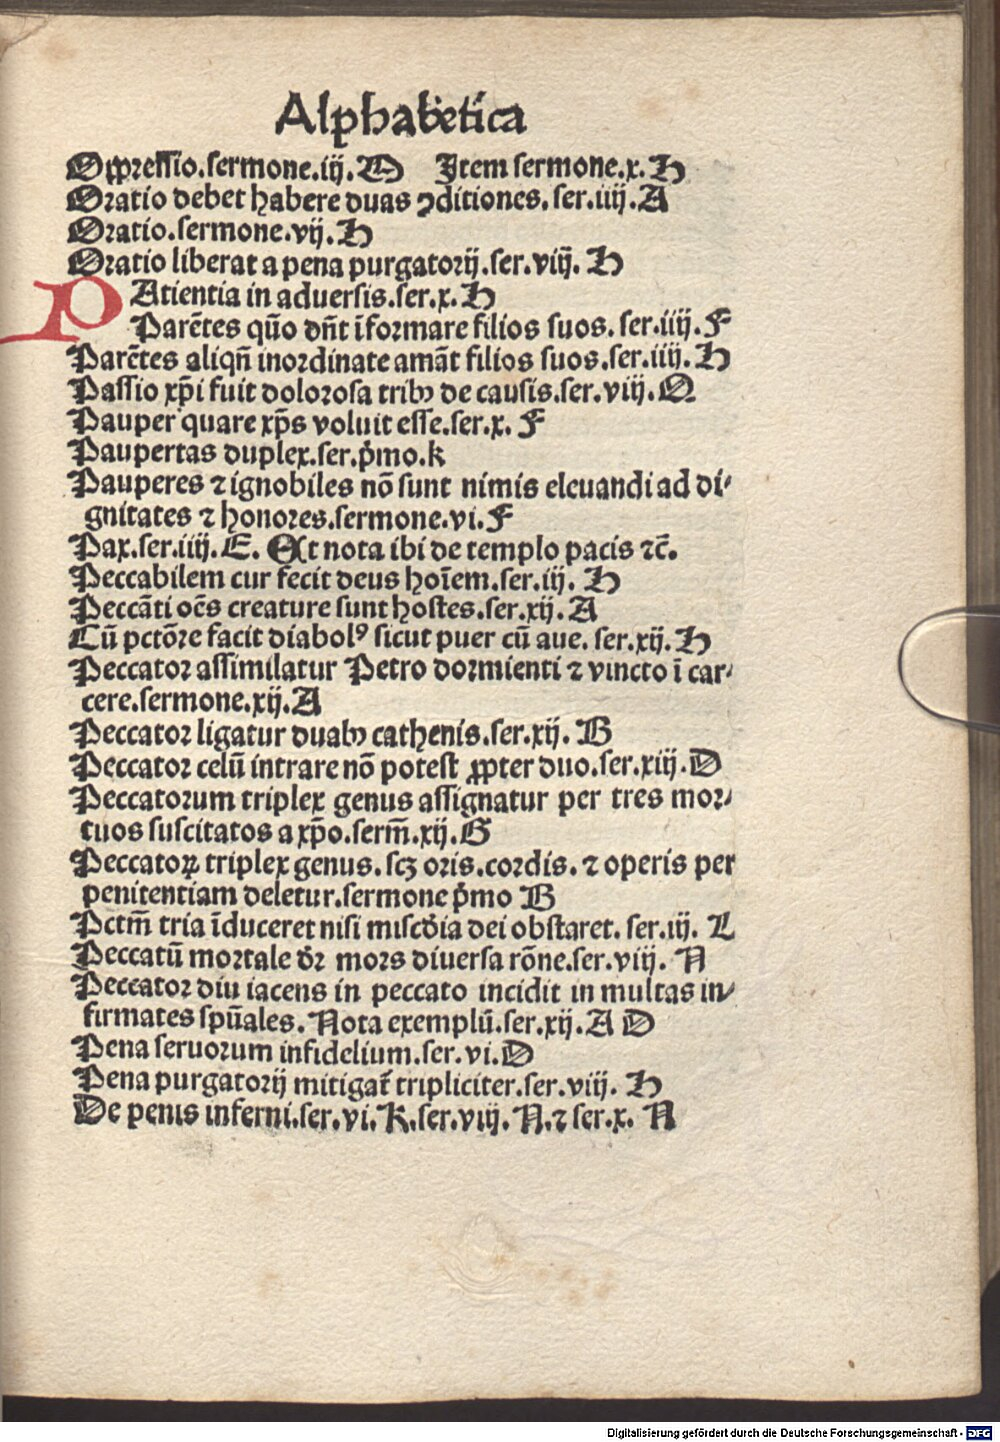 Alphabetica
Oppressio.sermone.iij.M Item sermone.x.H
Oratio debet habere duas ꝯditiones. ser.iiij.A
Oratio.sermone.vij.H
Oratio liberat a pena purgatorij.ser.viij. H
PAtientia in aduersis.ser.x.H
Parẽtes quõ dñt ĩformare filios suos. ser.iiij.F
Parẽtes aliqñ inordinate amãt filios suos.ser.iiij.H
Passio xp̃i fuit dolorosa tribꝰ de causis.ser.viij.Q
Pauper quare xp̃s voluit esse.ser.x. F
Paupertas duplex.ser.p̾mo.k
Pauperes ⁊ ignobiles nõ sunt nimis eleuandi ad di⸗
gnitates ⁊ honores.sermone.vi.F
Pax.ser.iiij.E. Et nota ibi de templo pacis ⁊c̃.
Peccabilem cur fecit deus hoĩem.ser.iij. H
Peccãti oẽs creature sunt hostes.ser.xij.A
Cũ pctõre facit diabolꝰ sicut puer cũ aue. ser.xij.H
Peccator assimilatur Petro dormienti ⁊ vincto ĩ car⸗
cere.sermone.xij.A
Peccator ligatur duabꝰ cathenis.ser.xij.B
Peccator celũ intrare nõ potest ꝓpter duo.ser.xiij.D
Peccatorum triplex genus assignatur per tres mor⸗
tuos suscitatos a xp̃o.serm̃.xij.G
Peccatoꝝ triplex genus.scꝫ oris.cordis. ⁊ operis per
penitentiam deletur.sermone p̾mo B
Pctm̃ tria ĩduceret nisi misc̾dia dei obstaret. ser.iij. L
Peccatũ mortale d̾r mors diuersa rõne.ser.viij. N
Peccator diu iacens in peccato incidit in multas in⸗
firmates spũales. Nota exemplũ.ser.xij.A D
Pena seruorum infidelium.ser.vi.D
Pena purgatorij mitigat̃ tripliciter.ser.viij. H
De penis inferni.ser.vi.K.ser.viij.N.⁊ ser.x. N
Digitalisierung gefördert durch die Deutsche Forschungsgemeinschaft - DFG